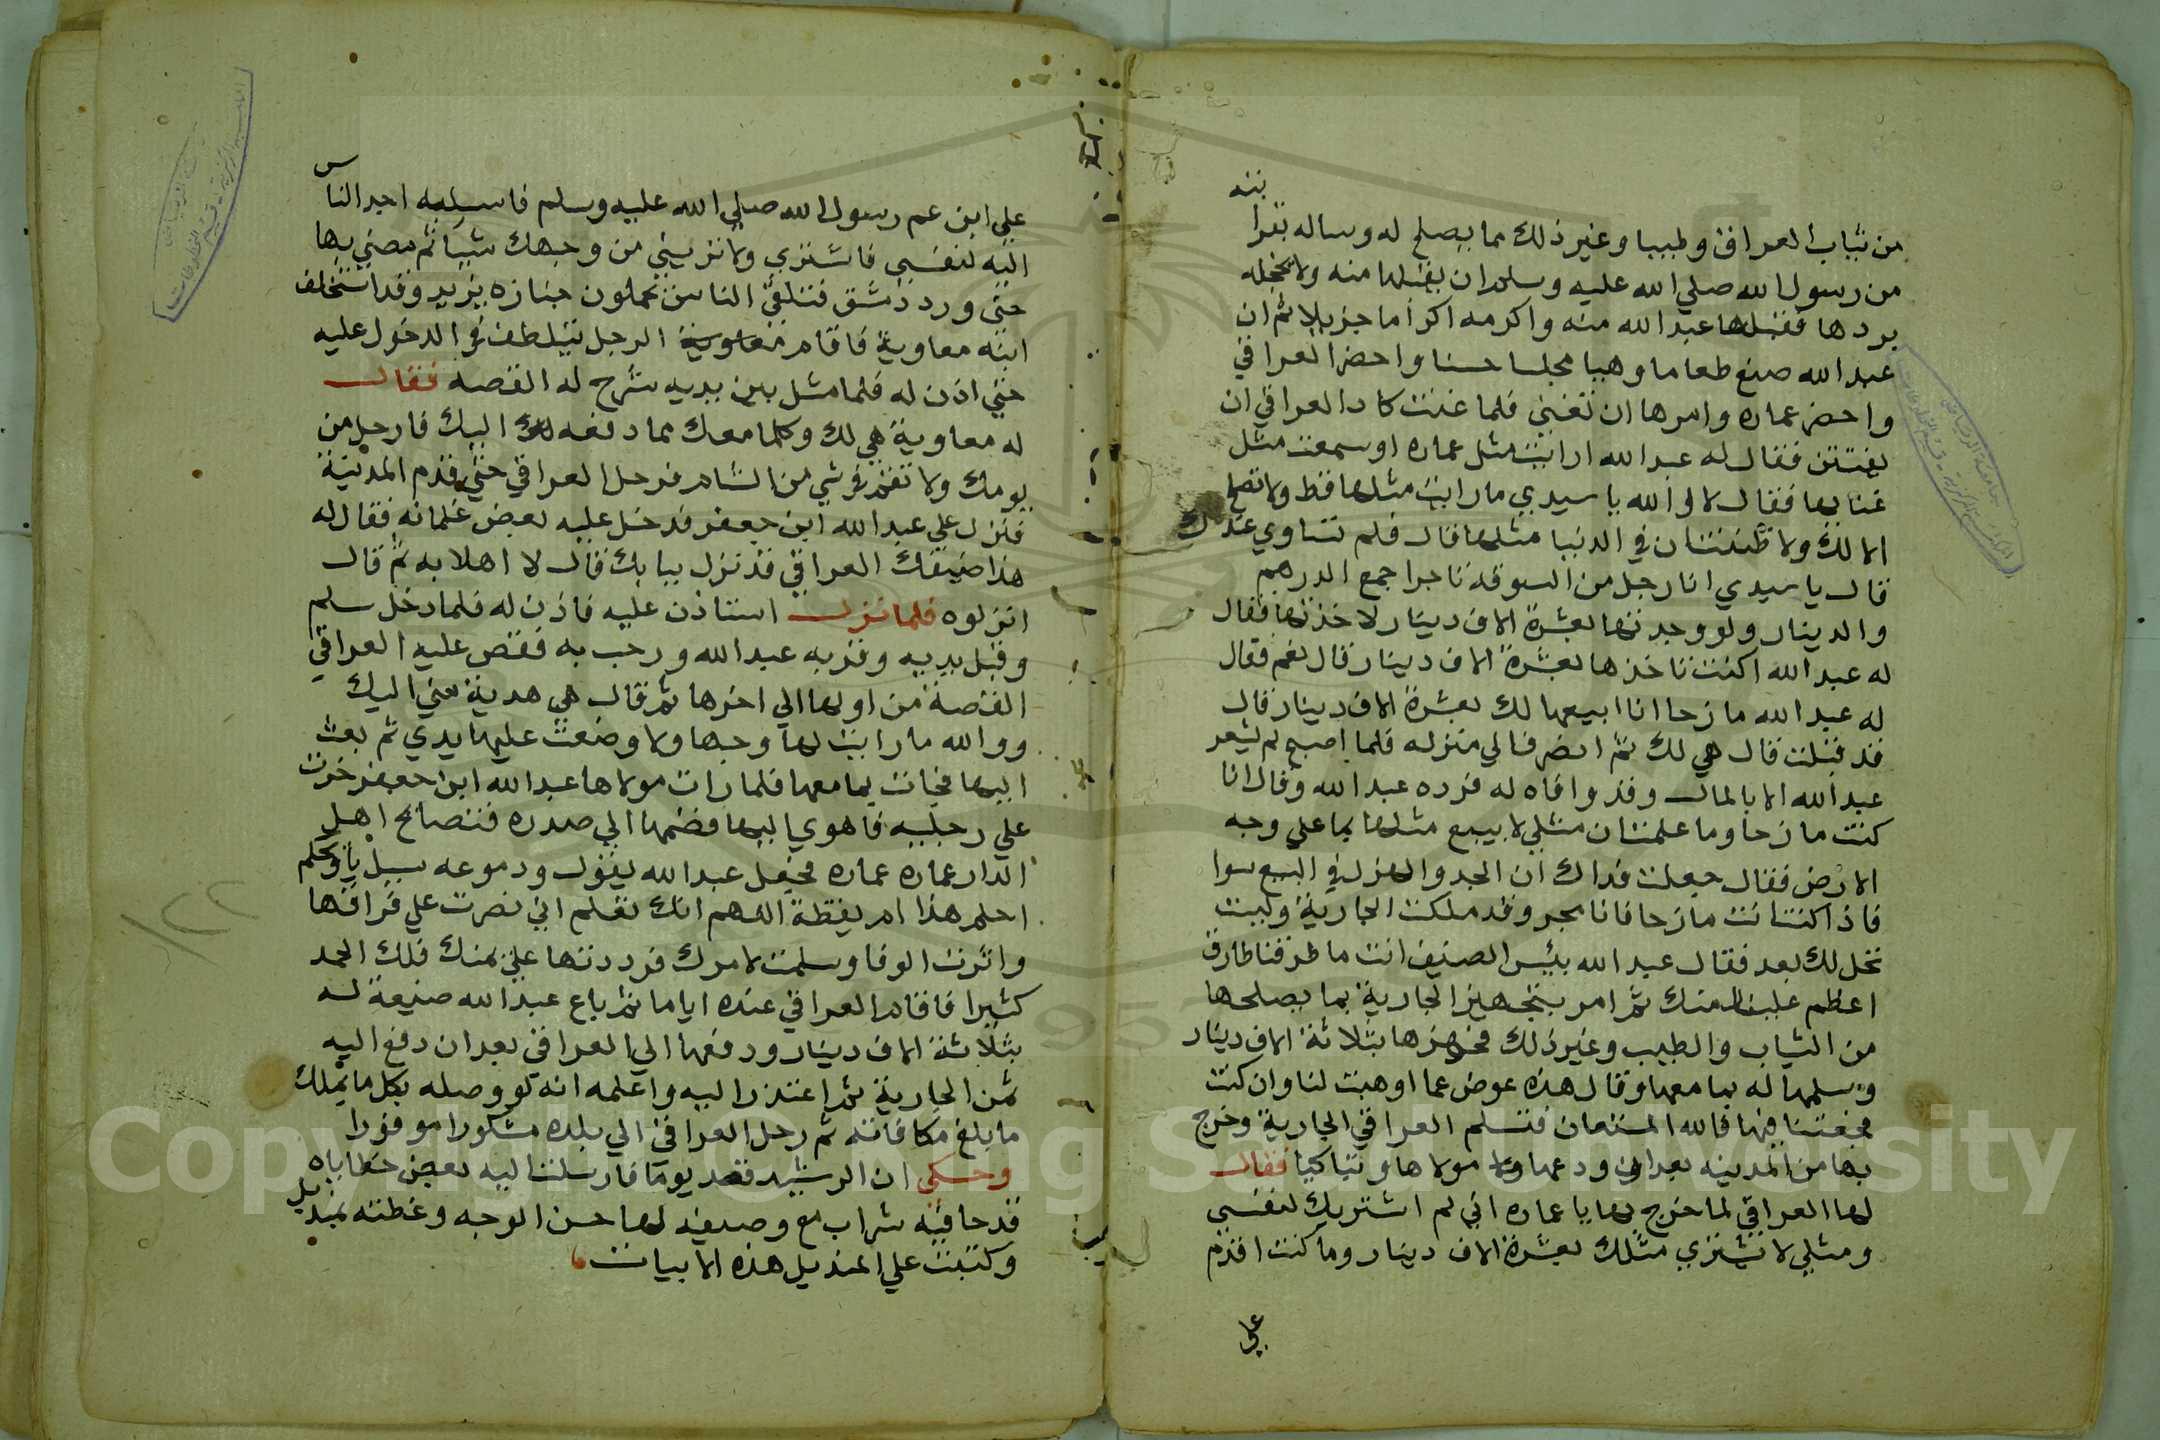 من ثياب العراق وطيبا وغير ذلك مما يصلح له وساله بقرا
بته
من رسول الله صلي الله عليه وسلم ان يقبلها منه ولا يخجله
بردها فقبلها عبد الله منه واكرمه اكراما جزيلا ثم ان
عبد الله صنع طعاما وهيا مجلسا حسنا واحضر العراقي
واحضر عماره وامرها ان تغني فلما غنت كاد العراقي ان
يفتتن فقال له عبد الله ارايت مثل عماره او سمعت مثل
غنايها فقال لا والله يا سيدي ما رايت مثلها قط ولا تصلح
الا لك ولا ظننت ان في الدنيا مثلها قال فلم تساوي عندك
قال يا سيدي انا رجل من السوقة تاجر اجمع الدرهم
والدينار ولو وجدتها بعشرة الاف دينار لاخذتها فقال
له عبد الله اكنت تاخذها بعشرة الاف دينار قال نعم فقال
له عبد الله مازحا انا ابيعها لك بعشرة الاف دينار قال
قد قبلت قال هي لك ثم انصرف الي منزله فلما اصبح لم يشعر
عبد الله الا بالمال وقد وافاه له فرده عبد الله وقال انا
كنت مازحا وما علمت ان مثلي لا يبيع مثلها بما علي وجه
الارض فقال جعلت فداك ان الجد والهزل في البيع سوا
فاذا كنت انت مازحا فانا مجد وقد ملكت الجارية وليست
تحل لك بعد فقال عبد الله بئس الضيف انت ما طرقنا طارق
اعظم علينا منك ثم امر بتجهيز الجارية بما يصلحها
من الثياب والطيب وغير ذلك فجهزها بثلاثة الاف دينار
وسلمها له بما معها وقال هذه عوض عما اوهبت لنا وان كنت
فجعتنا فيها فالله المستعان فتسلم العراقي الجارية وخرج
بها من المدينه بعد ان ودعها مولاها وتباكيا فقال
لها العراقي لما خرج بها يا عماره اني لم اشتريك لنفسي
ومثلي لا يشتري مثلك بعشرة الاف دينار وما كنت اقدم
علي
علي ابن عم رسول الله صلي الله عليه وسلم فاسلبه احب الناس
اليه لنفسي فاستتري ولا تريني من وجهك شيا ثم مضي بها
حتي ورد دمشق فتلقي الناس يحملون جنازه يزيد وقد استخلف
ابنه معاوية فاقام الرجل يتلطف في الدخول عليه
حتي اذن له فلما مثل بين يديه شرح له القصه فقال
له معاوية هي لك وكلما معك مما دفعه اليك فارحل من
يومك ولا تقم في شي من الشام فرحل العراقي حتي قدم المدينة
فنزل علي عبد الله ابن جعفر فدخل عليه بعض غلمانه فقال له
هذا ضيفك العراقي قد نزل ببابك قال لا اهلا به ثم قال
انزلوه فلما نزل استاذن عليه فاذن له فلما دخل سلم
وقبل يديه وقربه عبد الله ورحب به فقص عليه العراقي
القصة من اولها الي اخرها ثم قال هي هدية مني اليك
ووالله ما رايت لها وجها ولا وضعت عليها يدي ثم بعث
اليها فجات بما معها فلما رات مولاها عبد الله ابن جعفر خرت
علي رجليه فاهوي اليها فضمها الي صدره فتصايح اهل
الدار عماره عماره فجعل عبد الله يقول ودموعه تسيل
احلم هذا ام يقظة اللهم انك تعلم اني صبرت علي فراقها
واثرت الوفا وسلمت لامرك فرددتها علي بمنك فلك الحمد
كثيرا فاقام العراقي عنده اياما ثم باع عبد الله ضيعة له
بثلاثة الاف دينار ودفعها الي العراقي بعد ان دفع اليه
ثمن الجارية ثم اعتذر اليه واعلمه انه لو وصله بكل ما يملك
ما بلغ مكافاته ثم رحل العراقي الي بلده مشكورا موفورا
وحكي ان الرشيد فصد يوما فارسلت اليه بعض حظاياه
قدحا فيه شراب مع وصيفه لها حسن الوجه وغطته بمنديل
وكتبت علي المنديل هذه الابيات
١٢٢
Copyright © King Saud University